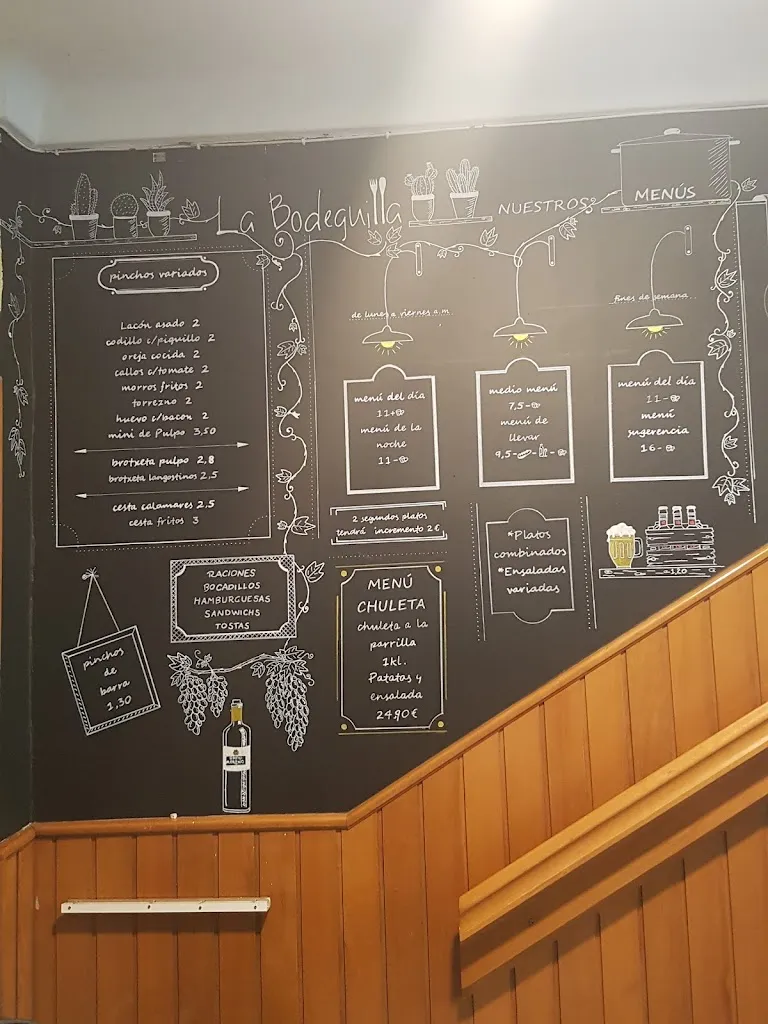 La Bodeguilla
NUESTROS
MENÚS
pinchos variados
Lacón asado 2
codillo c/piquillo 2
oreja cocida 2
callos c/tomate 2
morros fritos 2
torrezno 2
huevo c/bacon 2
mini de Pulpo 3,50
brotxeta pulpo 2,8
brotxeta langostinos 2,5
cesta calamares 2,5
cesta fritos 3
de lunes a viernes a.m.
fines de semana
menú del día
11
menú de la
noche
11-
medio menú
7,5-
menú de
llevar
9,5-
menú del día
11-
menú
sugerencia
16-
2 segundos platos
tendrá incremento 2€
*Platos
combinados
*Ensaladas
variadas
RACIONES
BOCADILLOS
HAMBURGUESAS
SANDWICHS
TOSTAS
MENÚ
CHULETA
chuleta a la
parrilla
1kl.
Patatas y
ensalada
24'90€
pinchos
de
barra
1,30